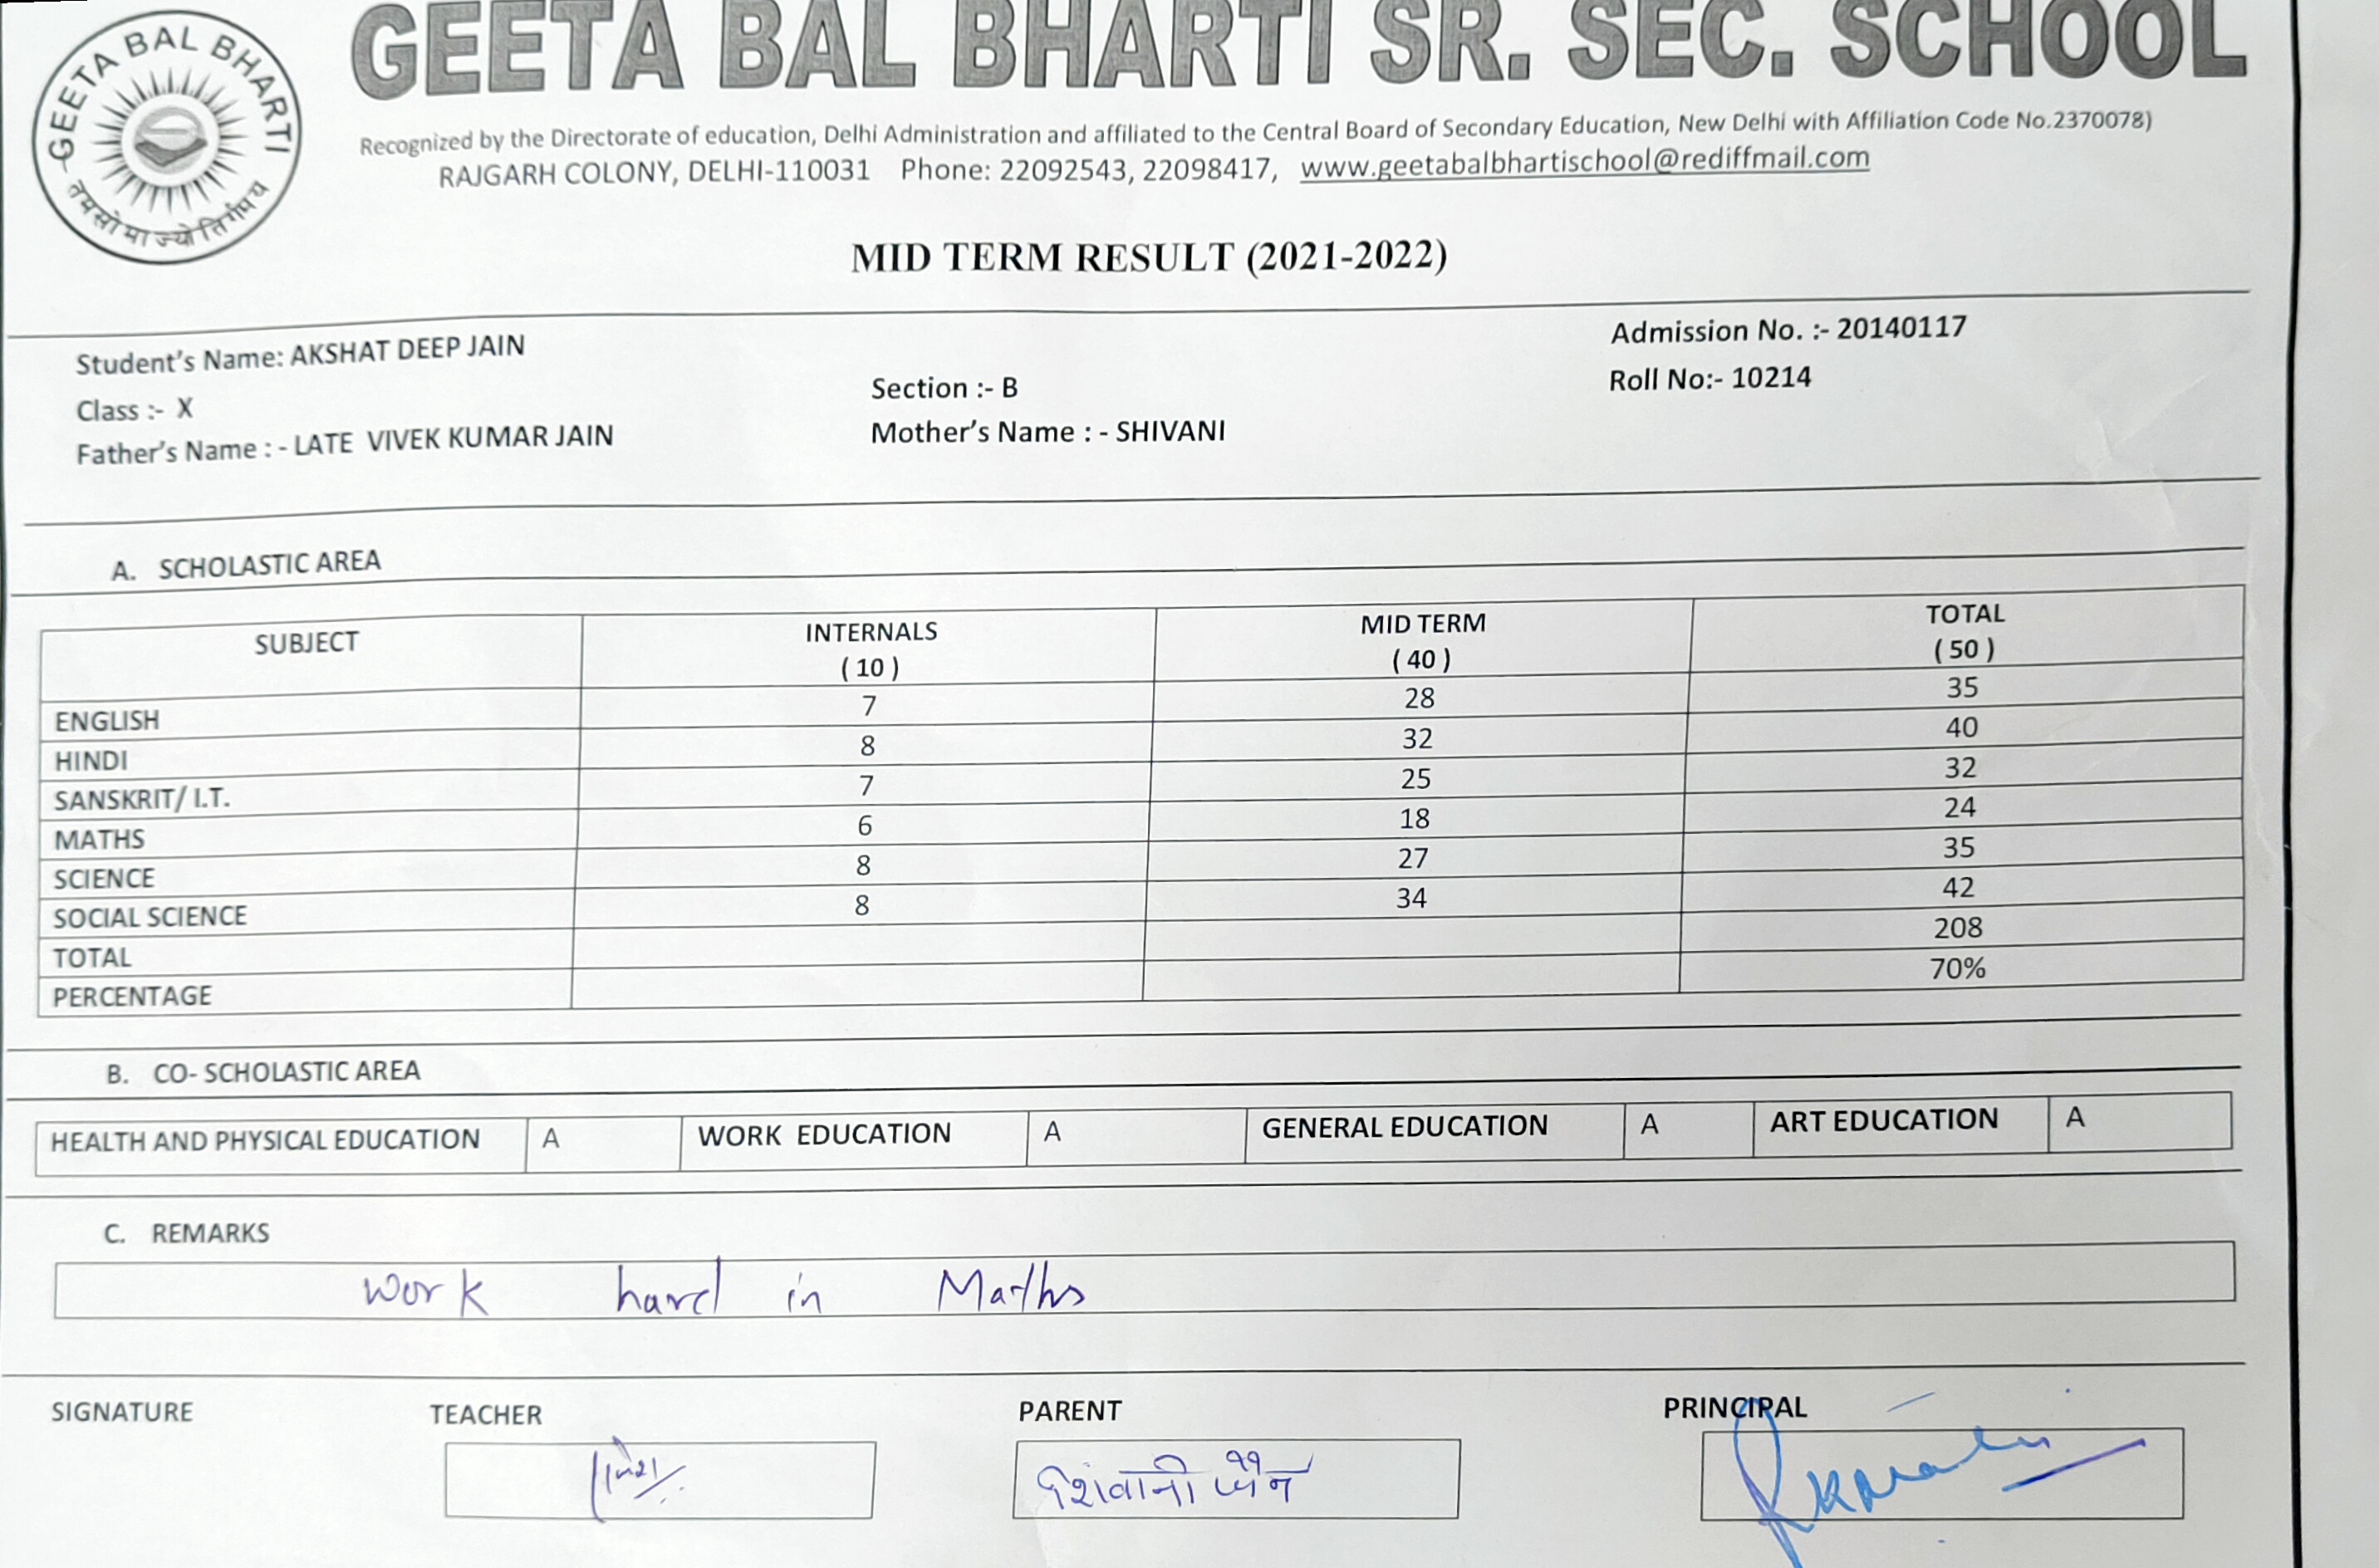 GEETA BAL BHARTI
तमसो मा ज्योतिर्गमय
GEETA BAL BHARTI SR. SEC. SCHOOL
Recognized by the Directorate of education, Delhi Administration and affiliated to the Central Board of Secondary Education, New Delhi with Affiliation Code No.2370078)
RAJGARH COLONY, DELHI-110031 Phone: 22092543, 22098417, www.geetabalbhartischool@rediffmail.com
MID TERM RESULT (2021-2022)
Student's Name: AKSHAT DEEP JAIN Admission No. :- 20140117
Class :- X Section :- B Roll No:- 10214
Father's Name : - LATE VIVEK KUMAR JAIN Mother's Name : - SHIVANI
A. SCHOLASTIC AREA
SUBJECT INTERNALS MID TERM TOTAL
( 10 ) ( 40 ) ( 50 )
ENGLISH 7 28 35
HINDI 8 32 40
SANSKRIT/ I.T. 7 25 32
MATHS 6 18 24
SCIENCE 8 27 35
SOCIAL SCIENCE 8 34 42
TOTAL 208
PERCENTAGE 70%
B. CO- SCHOLASTIC AREA
HEALTH AND PHYSICAL EDUCATION A WORK EDUCATION A GENERAL EDUCATION A ART EDUCATION A
C. REMARKS
work hard in Maths
SIGNATURE TEACHER PARENT PRINCIPAL
शिवानी जैन